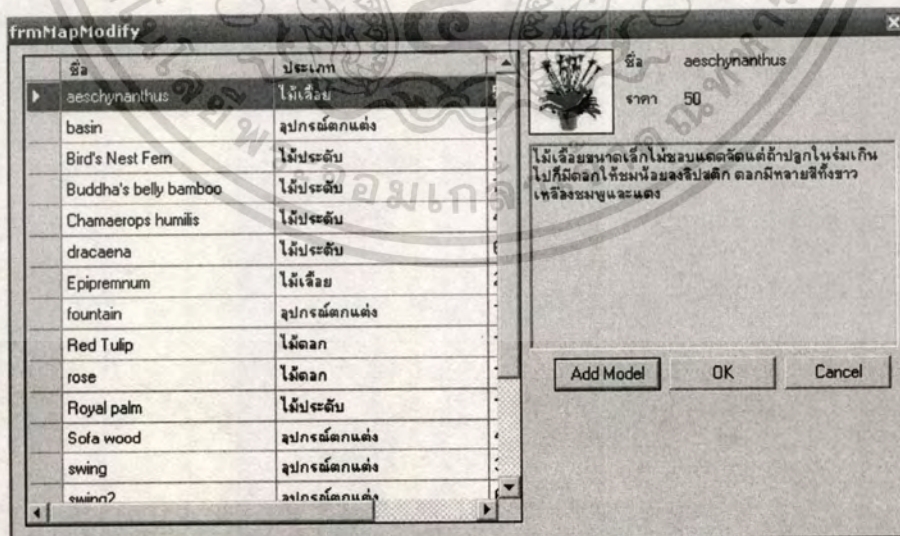 frmMapModify
ชื่อ ประเภท
aeschynanthus ไม้เลื้อย
basin อุปกรณ์ตกแต่ง
Bird's Nest Fern ไม้ประดับ
Buddha's belly bamboo ไม้ประดับ
Chamaerops humilis ไม้ประดับ
dracaena ไม้ประดับ
Epipremnum ไม้เลื้อย
fountain อุปกรณ์ตกแต่ง
Red Tulip ไม้ดอก
rose ไม้ดอก
Royal palm ไม้ประดับ
Sofa wood อุปกรณ์ตกแต่ง
swing อุปกรณ์ตกแต่ง
swing2 อุปกรณ์ตกแต่ง
ชื่อ aeschynanthus
ราคา 50
ไม้เลื้อยขนาดเล็กไม่ชอบแดดจัดแต่ถ้าปลูกในร่มเกิน
ไปก็มีดอกให้ชมน้อยลงลิปสติก ดอกมีหลายสีทั้งขาว
เหลืองชมพูและแดง
Add Model OK Cancel